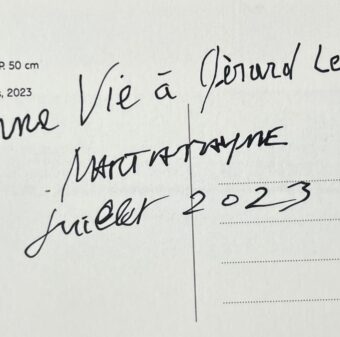 P. 50 cm
, 2023
Vie à Gérard Le
juillet 2023